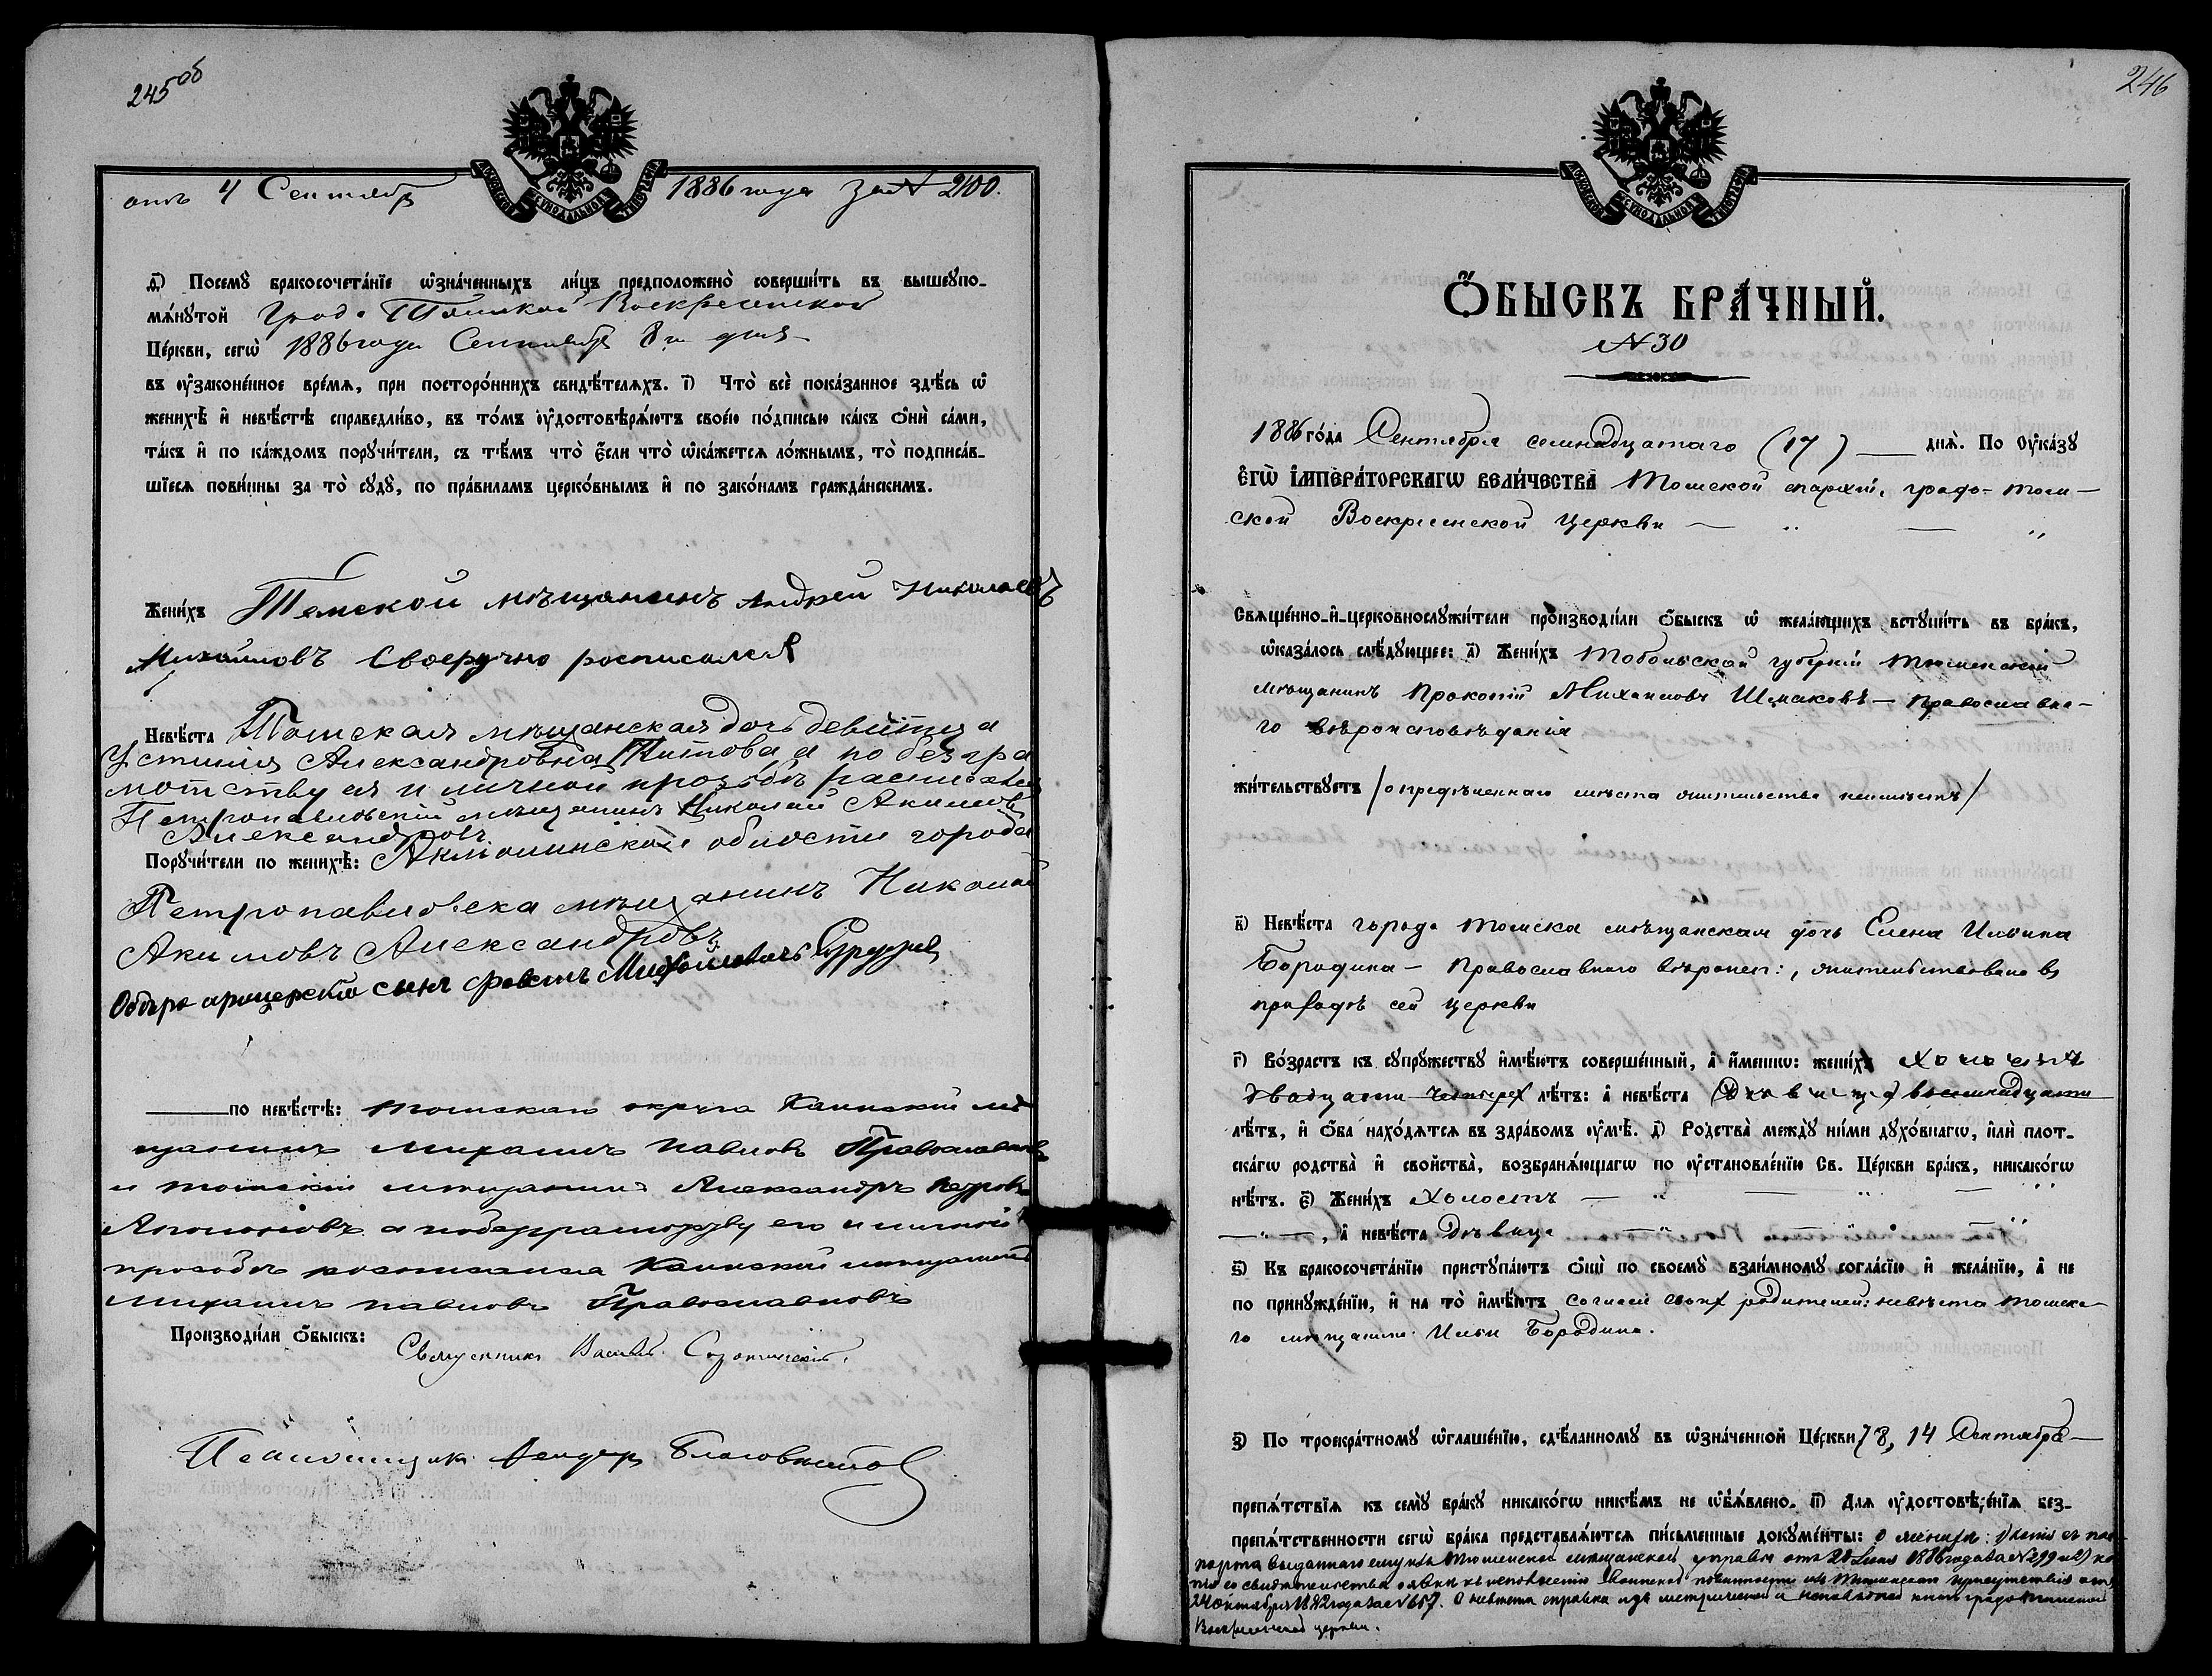 245об
отъ 4 Сентября 1886 года за № 2100.
МОСКОВСКОЙ СѴНОДАЛЬНОЙ ТѴПОГРАФІИ
д҃) Посемꙋ̀ бракосочета́нїе ѡзна́ченныхъ ли́цъ предположено̀ соверши́ть въ вышеꙋпо-
мѧ́нꙋтой Градо Томской Воскресенской
Це́ркви, сегѡ̀ 1886 года Сентября 8 го дня
въ ᲂу҆законе́нное вре́мѧ, при посторо́ннихъ свидѣ́телѧхъ. і҃) Что̀ всѐ пока́занное здѣ́сь ѡ҆
женихѣ̀ и҆ невѣ́стѣ справедли́во, въ то́мъ ᲂу҆достовѣрѧ́ютъ свое́ю по́дписью ка́къ ѻ҆нѝ са́ми,
та́къ и҆ по ка́ждомъ порꙋчи́тели, съ тѣ́мъ что̀ є҆́сли что̀ ѡ҆ка́жетсѧ ло́жнымъ, то̀ подписа́в-
шїесѧ пови́нны за то̀ сꙋдꙋ̀, по пра́виламъ церко́внымъ и҆ по зако́намъ гражда́нскимъ.
Жени́хъ Томской мѣщанинъ Андрей Николаевъ
Михайловъ Своеручно росписался
Невѣ́ста Томская мѣщанская дочь девица
Устинія Александровна Титова а по безгра
мотству ея и личной прозьбѣ расписался
Петропавловскій мѣщанинъ Николай Акимовъ
Александровъ
Порꙋчи́тели по женихѣ̀: Акмолинской области города
Петропавловска мѣщанинъ Николай
Акимовъ Александровъ
Оберъ офицерскій сынъ Михайловичъ
по невѣ́стѣ: томскаго округа Каинскій мѣ
щанинъ Михаилъ Павловъ Православновъ
и томскій мещанинъ Александръ Петровъ
а побезграмотству его и личной
прозбѣ росписался Каинскій мещанинъ
Михаилъ Павловъ Православновъ
Производи́ли ѻ҆́быскъ: Священникъ Василій
Псаломщикъ
246
МОСКОВСКОЙ СѴНОДАЛЬНОЙ ТѴПОГРАФІИ
Ѻ҆́БЫСКЪ БРА́ЧНЫЙ.
№ 30
1886 го́да Сентября семнадцатаго (17) — днѧ̀. По Оу҆ка́зꙋ
Є҆ГѠ̀ І҆МПЕРА́ТОРСКАГѠ ВЕЛИ́ЧЕСТВА Томской епархіи, градо-том-
ской Воскресенской церкви — „ — „
Свѧще́нно-и҆-церковнослꙋжи́тели производи́ли ѻ҆́быскъ ѡ҆ жела́ющихъ встꙋпи́ть въ бра́къ,
ѡ҆каза́лось слѣ́дꙋющее: а҃) Жени́хъ Тобольской губерніи Тюменскій
мѣщанинъ Прокопій Михаиловъ Шмаковъ — православна-
го вѣроисповѣданія
жи́тельствꙋетъ /опредѣленнаго мѣста жительства неимѣетъ/
в҃) Невѣ́ста города Томска мѣщанская дочь Елена Ильина
Бородина — Православнаго вѣроисп:, жительствовала въ
приходѣ сей церкви
г҃) Во́зрастъ къ сꙋпрꙋ́жествꙋ и҆мѣ́ютъ соверше́нный, а҆ и҆́меннѡ: жени́хъ холостъ
двадцати четырех лѣ́тъ: а҆ невѣ́ста (Дѣвица) восемнадцати
лѣ́тъ, и҆ ѻ҆́ба нахо́дѧтсѧ въ здра́вомъ ᲂу҆мѣ̀. д҃) Родства̀ междꙋ̀ ни́ми дꙋхо́внагѡ, и҆лѝ плот-
ска́гѡ родства̀ и҆ сво́йства, возбранѧ́ющагѡ по ᲂу҆становле́нїю Св. Це́ркви бра́къ, никако́гѡ
нѣ́тъ. є҃) Жени́хъ Холостъ — „ — „ — „
— „ —, а҆ невѣ́ста Дѣвица
ѕ҃) Къ бракосочета́нїю пристꙋпа́ютъ ѻ҆нѝ по своемꙋ̀ взаи́мномꙋ согла́сїю и҆ жела́нїю, а҆ не
по принꙋжде́нїю, и҆ на то̀ и҆мѣ́ютъ согласіе своих родителей: невѣста томска-
го мѣщанина Ильи Бородина.
з҃) По троекра́тномꙋ ѡ҆глаше́нїю, сдѣ́ланномꙋ въ ѡ҆зна́ченной Це́ркви 7, 8, 14 Сентября —
препѧ́тствїѧ къ семꙋ̀ бра́кꙋ никако́гѡ никѣ́мъ не ѡ҆б̾ѧ́влено. и҃) Длѧ ᲂу҆достовѣре́нїѧ без-
препѧ́тственности сегѡ̀ бра́ка представлѧ́ютсѧ пи́сьменные докꙋме́нты: о женихѣ: 1) копія съ пас-
порта выданнаго ему изъ Тюменской мѣщанской управы отъ 20 Іюня 1886 года за № 299 и 2) ко
пія со свидѣтельства о явкѣ къ исполненію воинской повинности изъ Тюменскаго присутствія отъ
24 октября 1882 года за № 657. О невѣстѣ справка изъ метрической и исповѣдной книгъ градо-Томской
Воскресенской церкви.